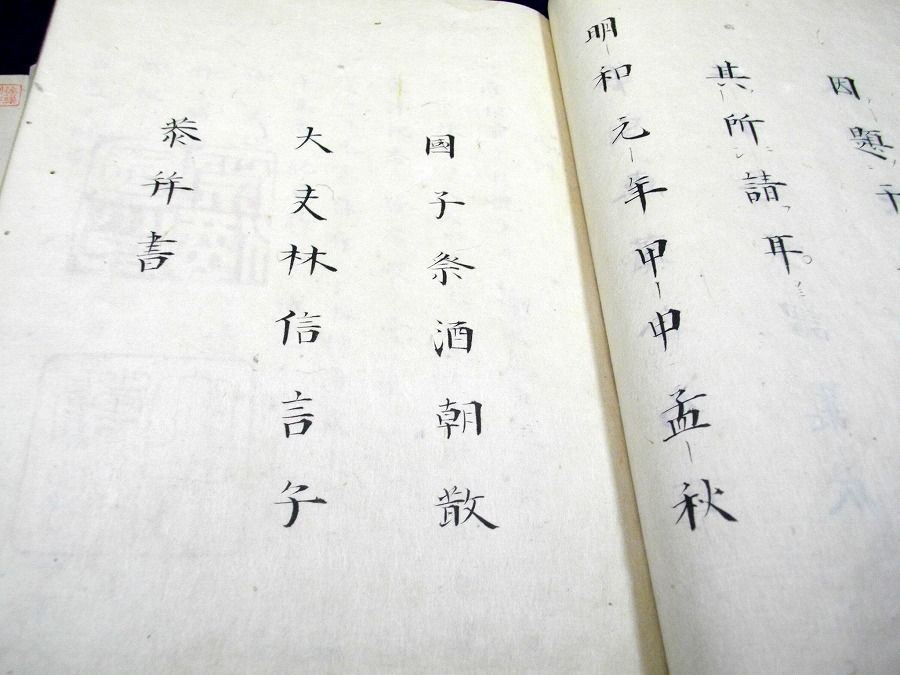 因題于
其所請耳。
明和元年甲申孟秋
國子祭酒朝散
大夫林信言子
恭幷書